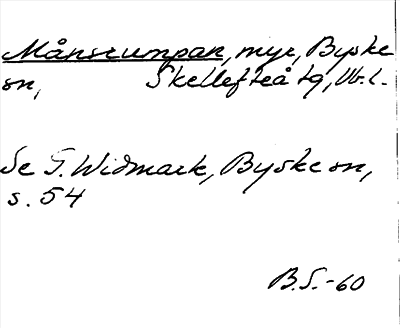 Månsrumpan, myr, Byske
sn, Skellefteå tg, Vb.l.
Se F. Widmark, Byske sn,
s. 54
B.S.-60